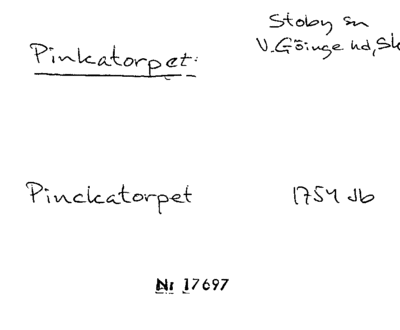 Stoby sn
Pinkatorpet:
V. Göinge hd, Sk
Pinckatorpet 1754 Jb
Nr 17697